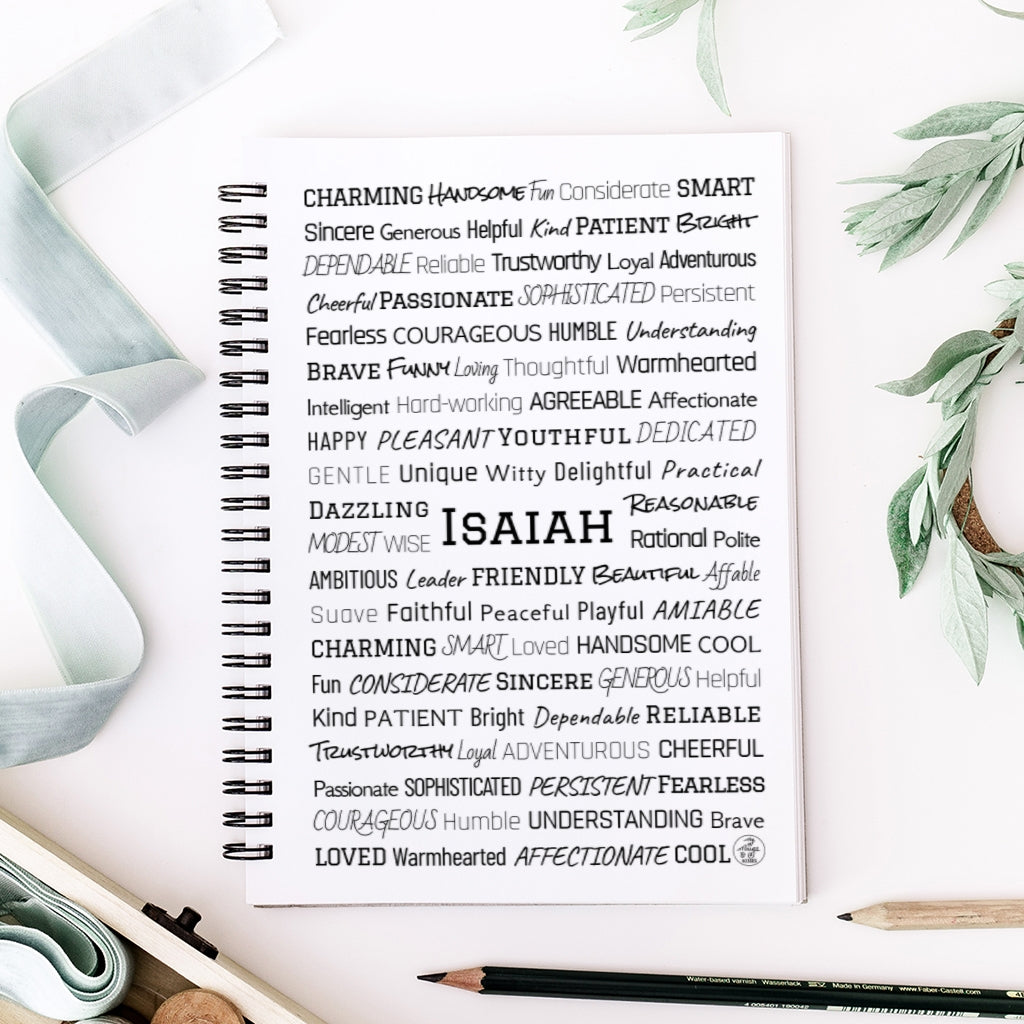 CHARMING HANDSOME Fun Considerate SMART
Sincere Generous Helpful Kind PATIENT BRIGHT
DEPENDABLE Reliable Trustworthy Loyal Adventurous
Cheerful PASSIONATE SOPHISTICATED Persistent
Fearless COURAGEOUS HUMBLE Understanding
BRAVE FUNNY Loving Thoughtful Warmhearted
Intelligent Hard-working AGREEABLE Affectionate
HAPPY PLEASANT YOUTHFUL DEDICATED
GENTLE Unique Witty Delightful Practical
DAZZLING
MODEST WISE
ISAIAH
REASONABLE
Rational Polite
AMBITIOUS Leader FRIENDLY BEAUTIFUL Affable
Suave Faithful Peaceful Playful AMIABLE
CHARMING SMART Loved HANDSOME COOL
Fun CONSIDERATE SINCERE GENEROUS Helpful
Kind PATIENT Bright Dependable RELIABLE
TRUSTWORTHY Loyal ADVENTUROUS CHEERFUL
Passionate SOPHISTICATED PERSISTENT FEARLESS
COURAGEOUS Humble UNDERSTANDING Brave
LOVED Warmhearted AFFECTIONATE COOL
Water-based varnish Wasserlack Made in Germany www.Faber-Castell.com
4 005401 190042